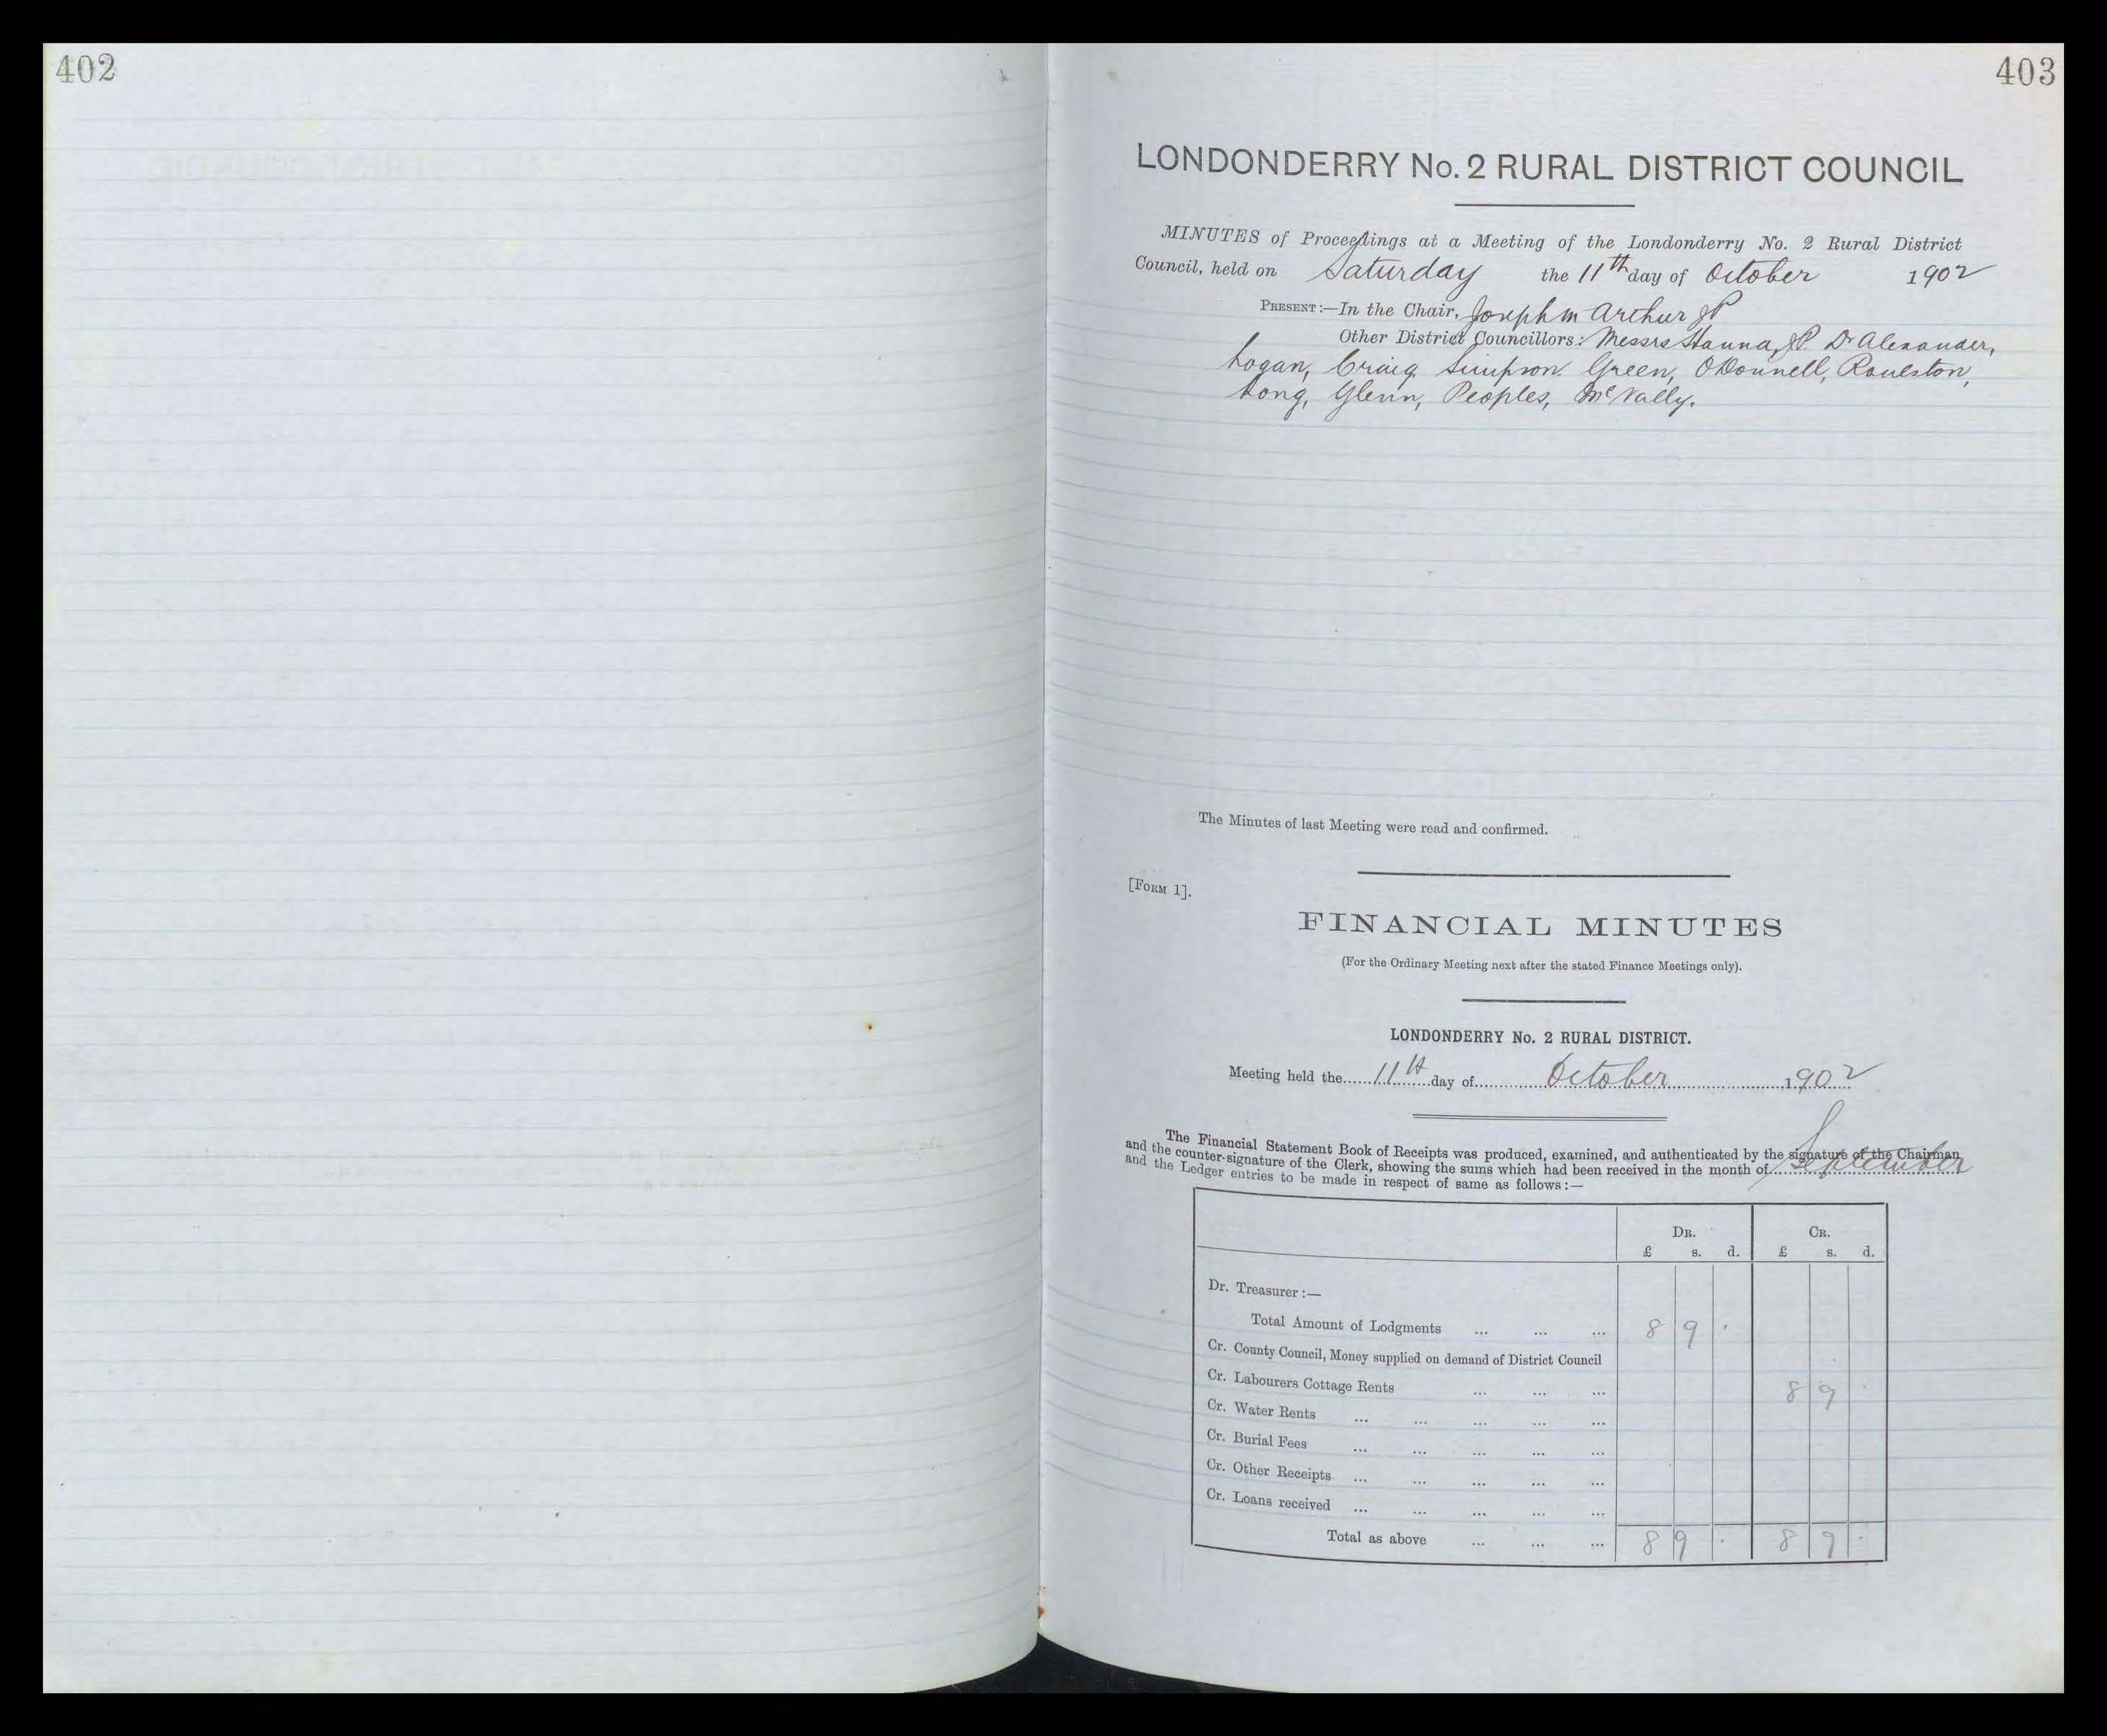 402
403
LONDONDERRY No. 2 RURAL DISTRICT COUNCIL
MINUTES of Proceedings at a Meeting of the Londonderry No. 2 Rural District
Council, held on Saturday the 11th day of October 1902
PRESENT:—In the Chair, Joseph M Arthur JP
Other District Councillors: Messrs Hanna, JP. Dr Alexander,
Logan, Craig Simpson Green, O'Donnell, Roulston,
Long, Glenn, Peoples, McNally.
The Minutes of last Meeting were read and confirmed.
[FORM 1].
FINANCIAL MINUTES
(For the Ordinary Meeting next after the stated Finance Meetings only).
LONDONDERRY No. 2 RURAL DISTRICT.
Meeting held the 11th day of October 1902
The Financial Statement Book of Receipts was produced, examined, and authenticated by the signature of the Chairman
and the counter-signature of the Clerk, showing the sums which had been received in the month of September
and the Ledger entries to be made in respect of same as follows:—
DR. CR.
£ s. d. £ s. d.
Dr. Treasurer:—
Total Amount of Lodgments ... ... ... 8 9 .
Cr. County Council, Money supplied on demand of District Council
Cr. Labourers Cottage Rents ... ... ... 8 9 .
Cr. Water Rents ... ... ... ... ...
Cr. Burial Fees ... ... ... ... ...
Cr. Other Receipts ... ... ... ... ...
Cr. Loans received ... ... ... ... ...
Total as above ... ... ... 8 9 . 8 9 .